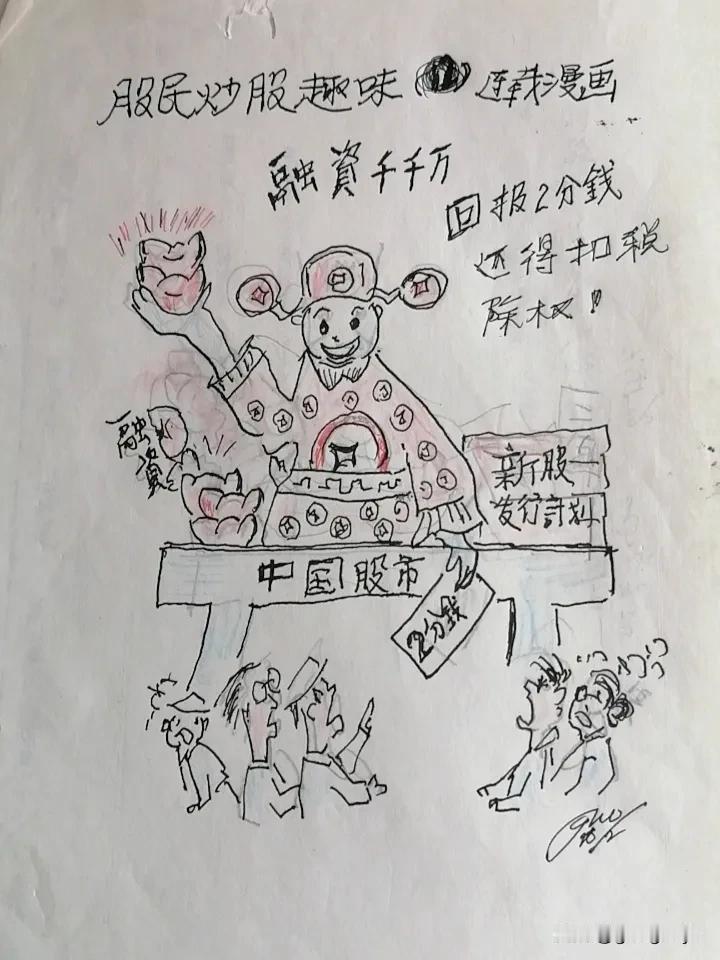 股民炒股趣味 連載漫画
融資千千万
回报2分錢
还得扣税
除权!
融資
新股
发行計划
中国股市
2分钱